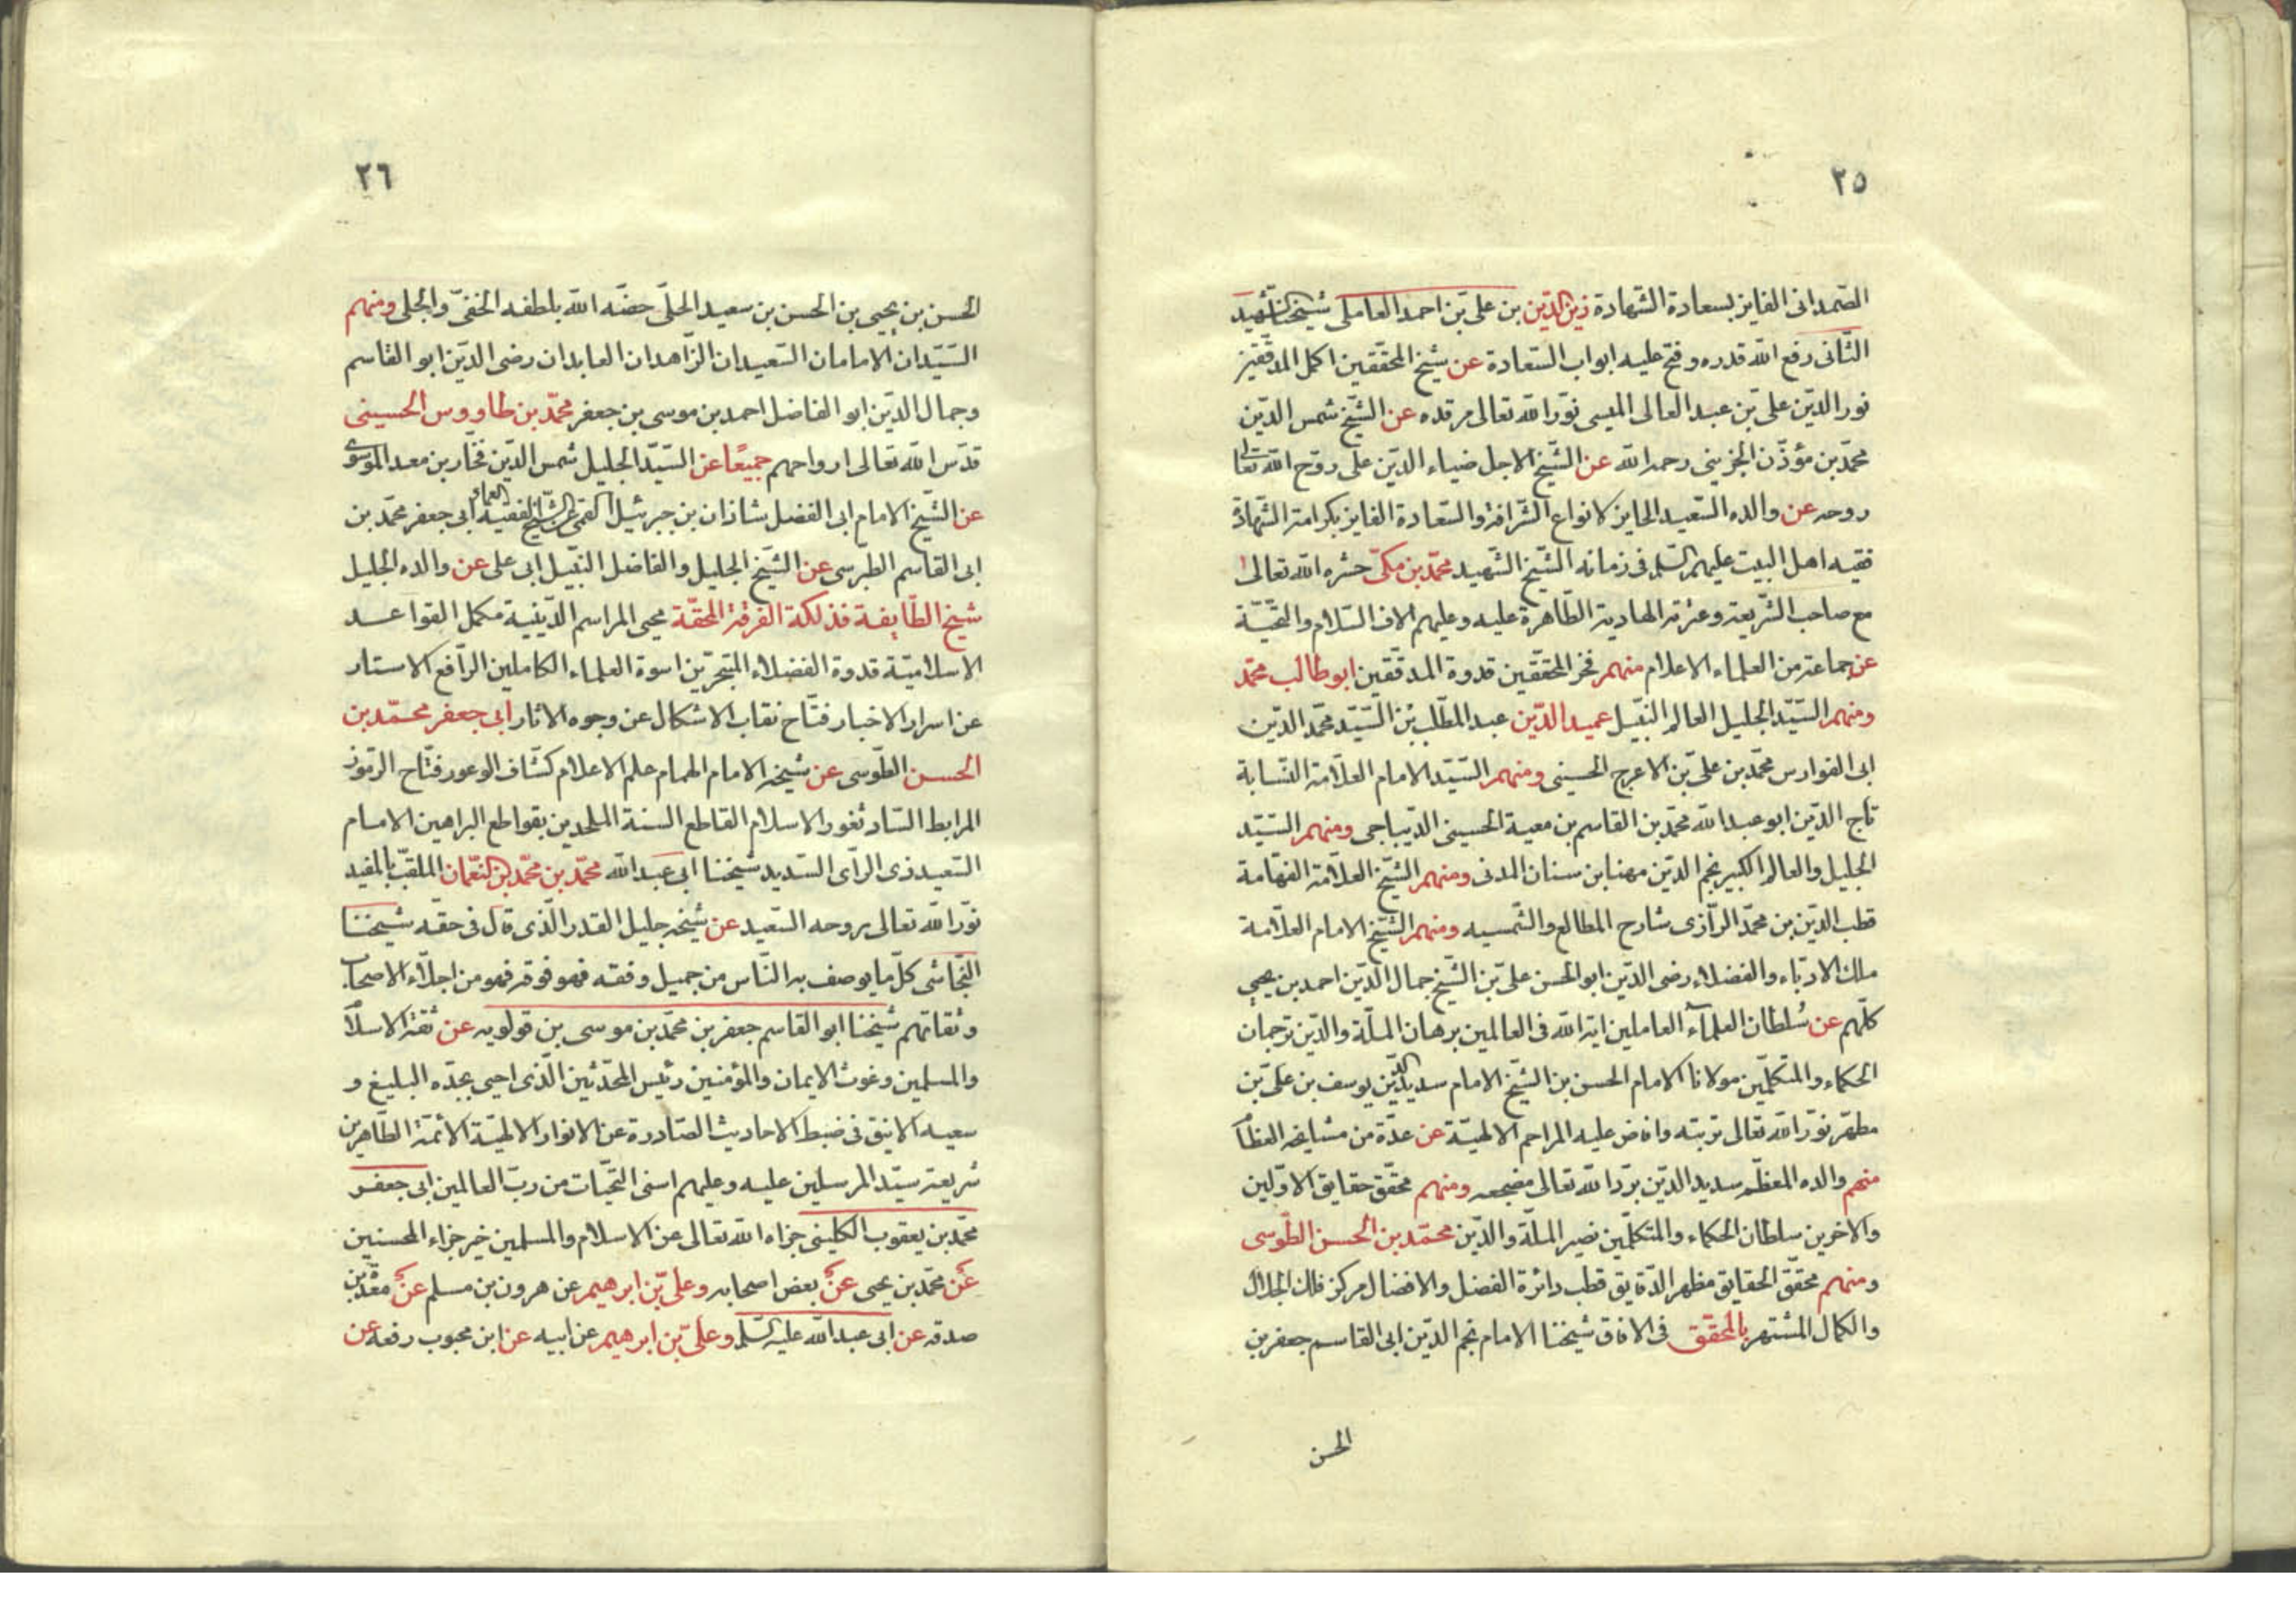 ٢٥
الصّمدانى الفايز بسعادة الشّهادة زين الدّين بن على بن احمد العاملى شيخنا الشّهيد
الثّانى رفع اللّه قدره وفتح عليه ابواب السّعادة عن شيخ المحقّقين اكمل المدقّقين
نور الدّين على بن عبد العالى الميسى نوّر اللّه تعالى مرقده عن الشّيخ شمس الدّين
محمّد بن مؤذّن الجزينى رحمه اللّه عن الشّيخ الاجل ضياء الدّين على روّح اللّه تعالى
روحه عن والده السّعيد الحايز لانواع الشّرافة والسّعادة الفايز بكرامة الشّهادة
فقيه اهل البيت عليهم السّلم فى زمانه الشّيخ الشّهيد محمّد بن مكّى حشره اللّه تعالى
مع صاحب الشّريعة وعترته الهادية الطّاهرة عليه وعليهم الاف السّلام والتّحيّة
عن جماعة من العلماء الاعلام منهم فخر المحقّقين قدوة المدقّقين ابو طالب محمّد
ومنهم السّيّد الجليل العالم النّبيل عميد الدّين عبد المطّلب بن السّيّد محمّد الدّين
ابى الفوارس محمّد بن على بن الاعرج الحسينى ومنهم السّيّد الامام العلّامة النّسابة
تاج الدّين ابو عبد اللّه محمّد بن القاسم بن معية الحسينى الدّيباجى ومنهم السّيّد
الجليل والعالم الكبير نجم الدّين مهنا بن سنان المدنى ومنهم الشّيخ العلّامة الفهّامة
قطب الدّين بن محمّد الرّازى شارح المطالع والشّمسيه ومنهم الشّيخ الامام العلّامة
ملك الادبّاء والفضلاء رضى الدّين ابو الحسن على بن الشّيخ جمال الدّين احمد بن يحيى
كلّهم عن سُلطان العلماء العاملين اية اللّه فى العالمين برهان الملّة والدّين ترجمان
الحكماء والمتكلّمين مولانا الامام الحسن بن الشّيخ الامام سديد الدّين يوسف بن على بن
مطهّر نوّر اللّه تعالى تربته وافاض عليه المراحم الالهيّة عن عدّة من مشايخه العظام
منهم والده المعظّم سديد الدّين برّد اللّه تعالى مضجعه ومنهم محقّق حقايق الاوّلين
والاخرين سلطان الحكماء والمتكلّمين نصير الملّة والدّين محمّد بن الحسن الطّوسى
ومنهم محقّق الحقايق مظهر الدّقايق قطب دائرة الفضل والافضال مركز فلك الجلال
والكمال المشتهر بالمحقّق فى الافاق شيخنا الامام نجم الدّين ابى القاسم جعفر بن
الحسن
٢٦
الحسن بن يحيى بن الحسن بن سعيد الحلّى خصّه اللّه بلطفه الخفىّ والجلى ومنهم
السّيّدان الامامان السّعيدان الزّاهدان العابدان رضى الدّين ابو القاسم
وجمال الدّين ابو الفاضل احمد بن موسى بن جعفر محمّد بن طاووس الحسينى
قدّس اللّه تعالى ارواحهم جميعًا عن السّيّد الجليل شمس الدّين فخّار بن معد الموسوى
عن الشّيخ الامام ابى الفضل شاذان بن جبرئيل القمى عن الشّيخ الفقيه العماد ابى جعفر محمّد بن
ابى القاسم الطّبرسى عن الشّيخ الجليل والفاضل النّبيل ابى على عن والده الجليل
شيخ الطّايفة فذلكة الفرقة المحقّة محيى المراسم الدّينية مكمل القواعد
الاسلاميّة قدوة الفضلاء المتبحّرين اسوة العلماء الكاملين الرّافع الاستار
عن اسرار الاخبار فتّاح نقاب الاشكال عن وجوه الاثار ابى جعفر محمّد بن
الحسن الطّوسى عن شيخه الامام الهمام علم الاعلام كشّاف الوعور فتّاح الرّموز
المرابط السّاد ثغور الاسلام القاطع السنة الملحدين بقواطع البراهين الامام
السّعيد ذى الرّاى السّديد شيخنا ابى عبد اللّه محمّد بن محمّد بن النّعمان الملقّب بالمفيد
نوّر اللّه تعالى بروحه السّعيد عن شيخه جليل القدر الّذى قال فى حقّه شيخنا
النّجاشى كلّما يوصف به النّاس من جميل وفقه فهو فوقه فهو من اجلّاء الاصحاب
وثقاتهم شيخنا ابو القاسم جعفر بن محمّد بن موسى بن قولويه عن ثقة الاسلام
والمسلمين وغوث الايمان والمؤمنين رئيس المحدّثين الّذى احيى بجدّه البليغ و
سعيه الانيق فى ضبط الاحاديث الصّادرة عن الانوار الالهيّة الائمّة الطّاهرين
شريعة سيّد المرسلين عليه وعليهم اسنى التّحيّات من ربّ العالمين ابى جعفر
محمّد بن يعقوب الكلينى جزاه اللّه تعالى عن الاسلام والمسلمين خير جزاء المحسنين
عن محمّد بن يحيى عن بعض اصحابه وعلى بن ابرهيم عن هرون بن مسلم عن مسعدة بن
صدقه عن ابى عبد اللّه عليه السّلم وعلى بن ابرهيم عن ابيه عن ابن محبوب رفعه عن